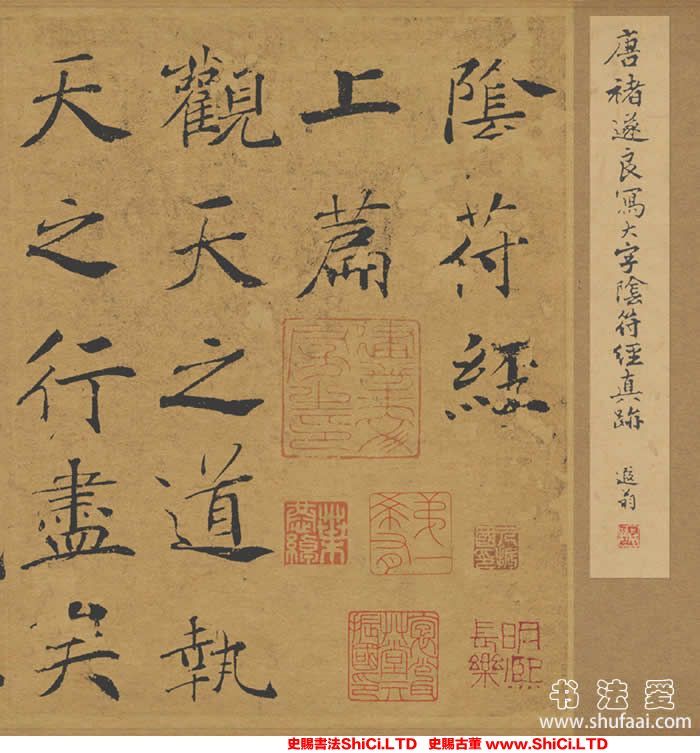 唐褚遂良寫大字陰符經真跡
遐翁
陰符經
上篇
觀天之道執
天之行盡矣
明熙
長樂
书法爱
www.shufaai.com
史賜書法ShiCi.LTD 史賜古董 www.ShiCi.LTD